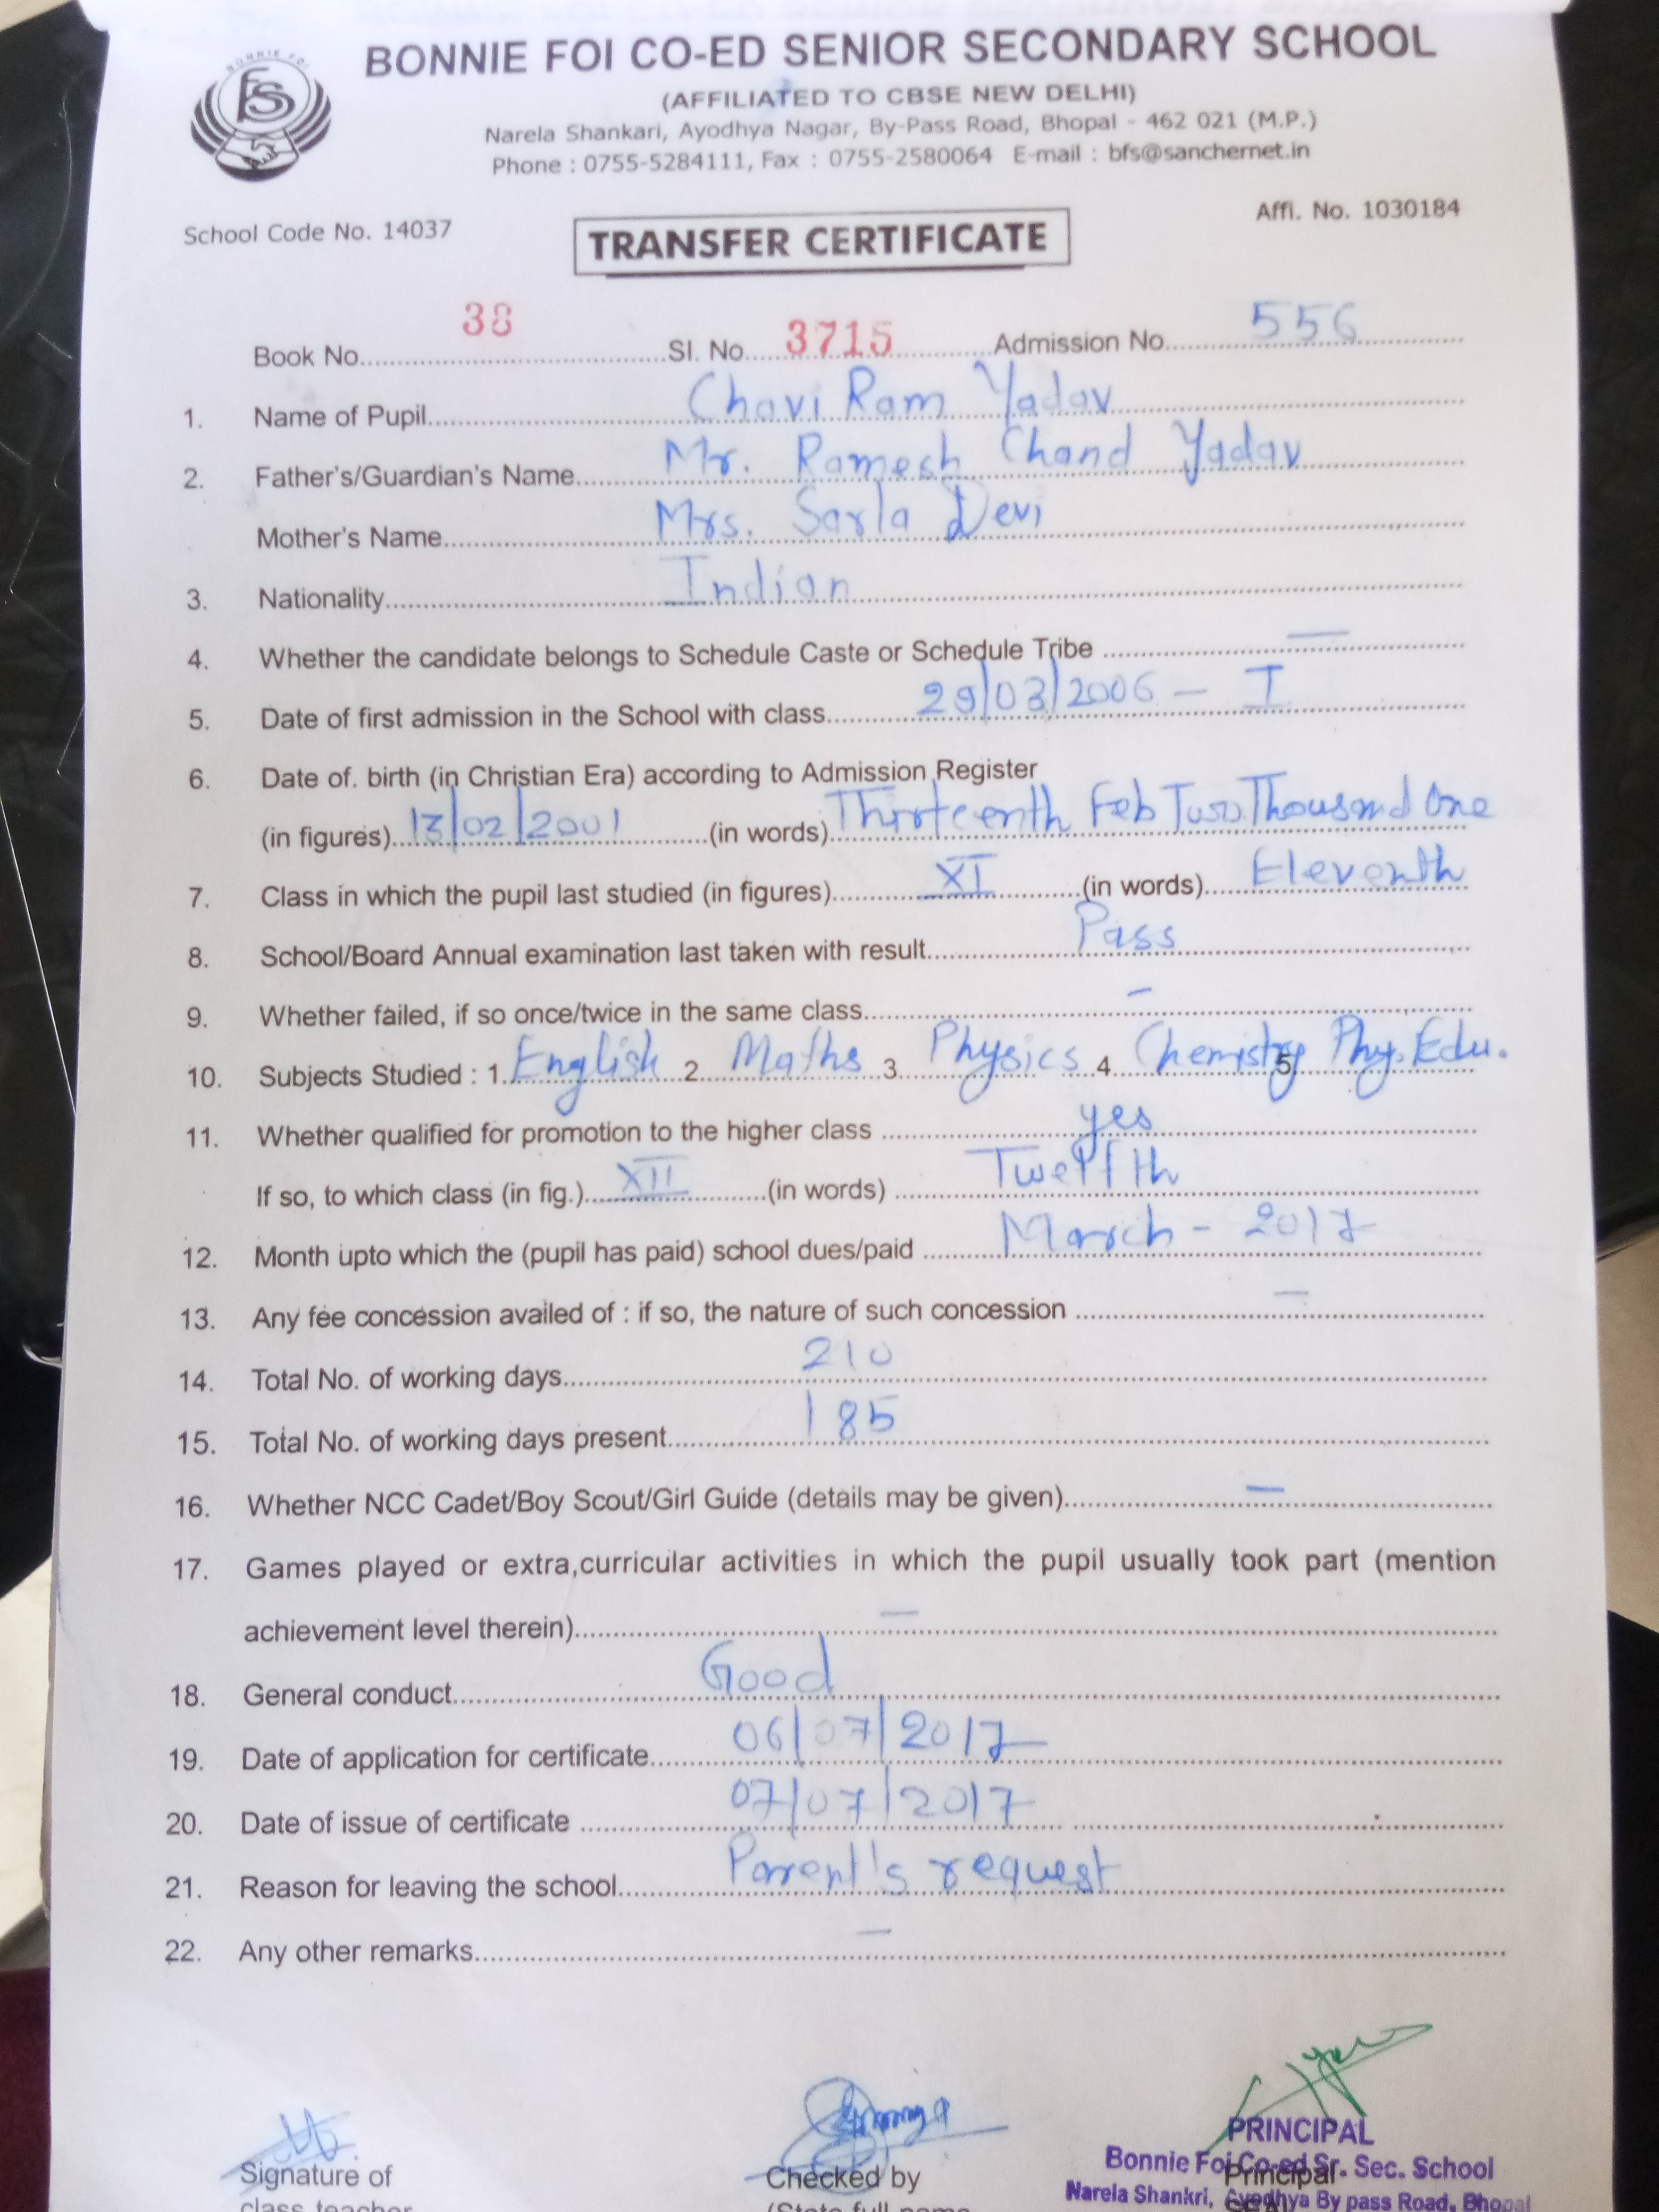 BONNIE FOI
BONNIE FOI CO-ED SENIOR SECONDARY SCHOOL
(AFFILIATED TO CBSE NEW DELHI)
Narela Shankari, Ayodhya Nagar, By-Pass Road, Bhopal - 462 021 (M.P.)
Phone : 0755-5284111, Fax : 0755-2580064 E-mail : bfs@sanchernet.in
School Code No. 14037
Affi. No. 1030184
TRANSFER CERTIFICATE
Book No. 38 Sl. No. 3715 Admission No. 556
1. Name of Pupil Chavi Ram Yadav
2. Father's/Guardian's Name Mr. Ramesh Chand Yadav
Mother's Name Mrs. Sarla Devi
3. Nationality Indian
4. Whether the candidate belongs to Schedule Caste or Schedule Tribe —
5. Date of first admission in the School with class 29/03/2006 - I
6. Date of. birth (in Christian Era) according to Admission Register
(in figures) 13/02/2001 (in words) Thirteenth Feb Two Thousand One
7. Class in which the pupil last studied (in figures) XI (in words) Eleventh
8. School/Board Annual examination last taken with result Pass
9. Whether failed, if so once/twice in the same class -
10. Subjects Studied : 1. English 2 Maths 3 Physics 4 Chemistry 5 Phy. Edu.
11. Whether qualified for promotion to the higher class yes
If so, to which class (in fig.) XII (in words) Twelfth
12. Month upto which the (pupil has paid) school dues/paid March - 2017
13. Any fee concession availed of : if so, the nature of such concession —
14. Total No. of working days 210
15. Total No. of working days present 185
16. Whether NCC Cadet/Boy Scout/Girl Guide (details may be given) —
17. Games played or extra,curricular activities in which the pupil usually took part (mention
achievement level therein) —
18. General conduct Good
19. Date of application for certificate 06/07/2017
20. Date of issue of certificate 07/07/2017
21. Reason for leaving the school Parent's request
22. Any other remarks —
PRINCIPAL
Bonnie Foi Co-ed Sr. Sec. School
Narela Shankri, Ayodhya By pass Road, Bhopal
Signature of
class teacher
Checked by
(State full name
Principal